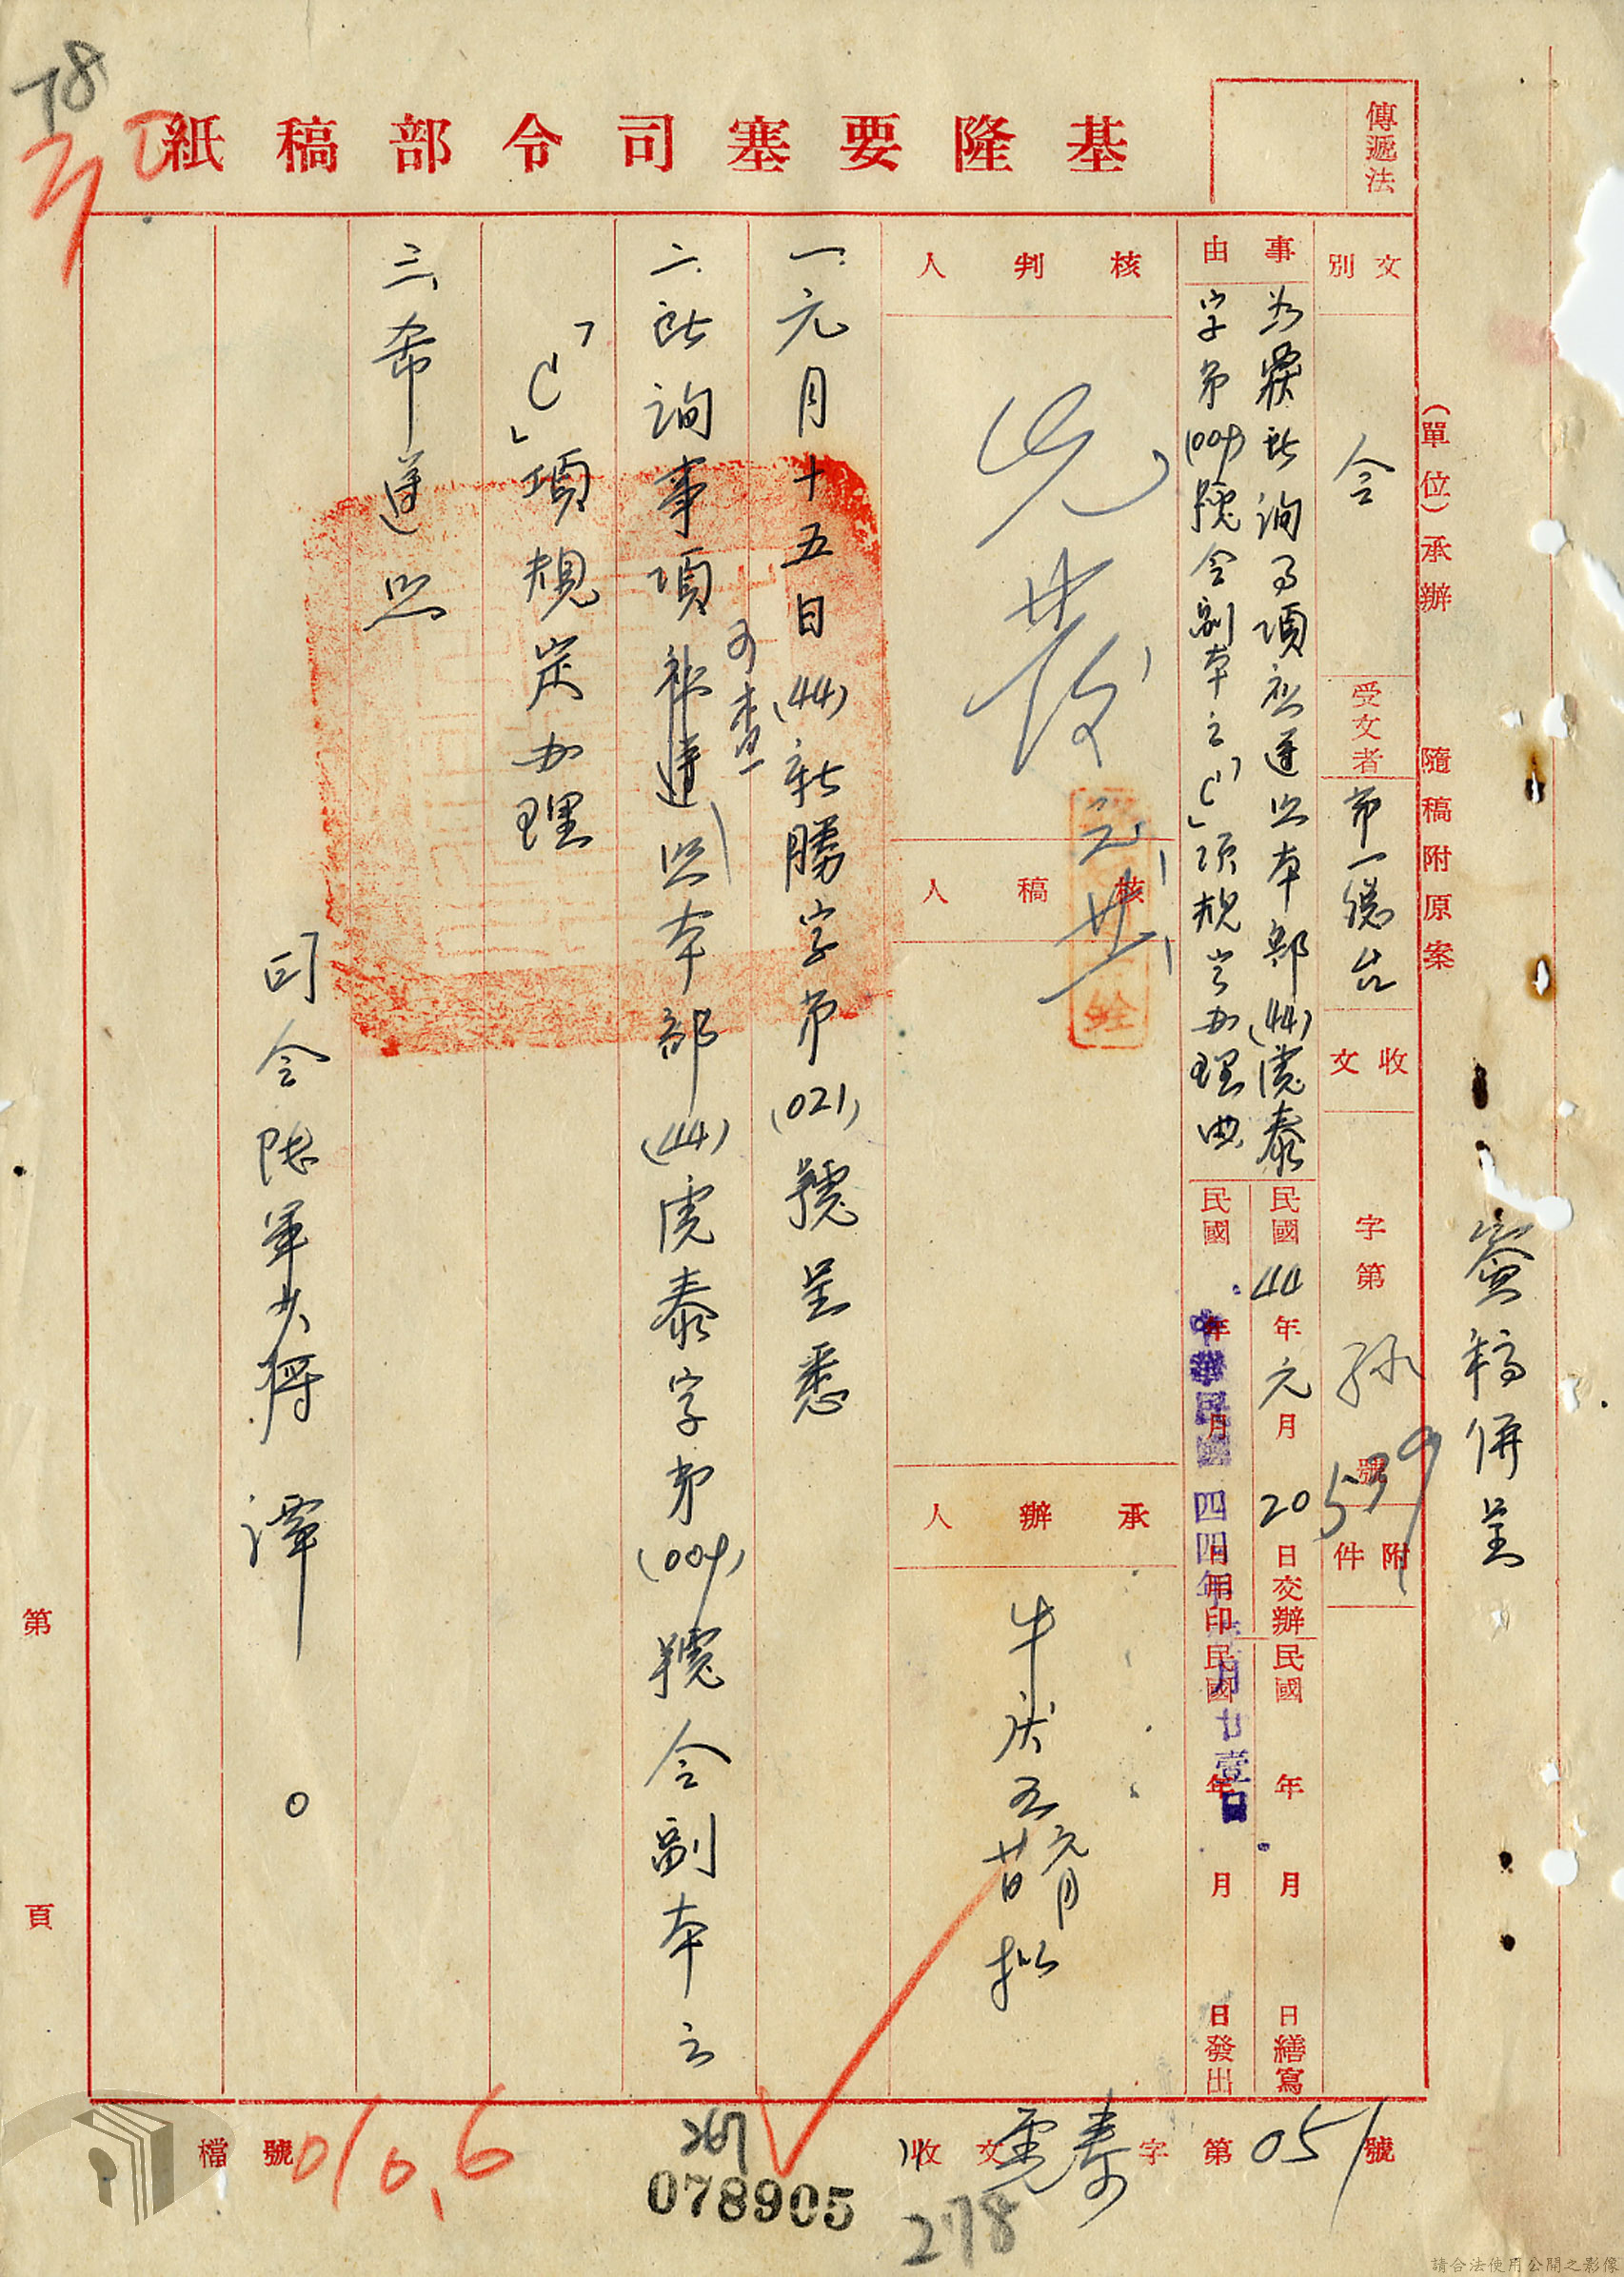 基隆要塞司令部稿紙
傳遞法
(單位)承辦　隨稿附原案
簽稿併呈
文別　令
受文者　第一總台
收文　字第　號
539
附件
事由
為覆所詢事項應遵照本部(44)虎泰
字第(004)號令副本之「C」項規定辦理由
民國44年元月20日交辦
民國　年　月　日繕寫
民國　年　月　日用印
中華民國四四年　月廿壹日
民國　年　月　日發出
核判人
核稿人
承辦人
牛庆五
元月
廿日
拟
一.元月十五日(44)新勝字第(021)號呈悉
二.所詢事項
可查
照本部(44)虎泰字第(004)號令副本之
「C」項規定办理
三、希遵照
司令陸軍少將　譚　。
第　頁
檔號
010.6
267
078905
收文　字第051號
278
78
請合法使用公開之影像